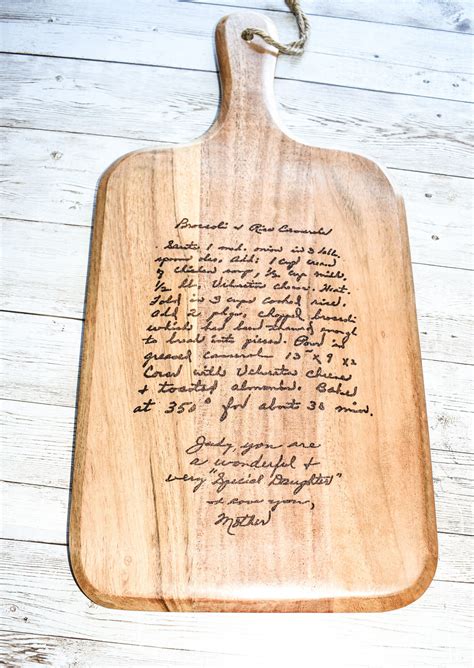 Broccoli & Rice Casserole
Saute 1 med. onion in 3 table
spoons oleo. Add: 1 cup cream
of chicken soup, ½ cup milk,
½ lb. Velveeta cheese. Heat.
Fold in 3 cups cooked rice.
Add 2 pkgs. chopped broccoli
which has been thawed enough
to break into pieces. Pour in
greased casserole 13" x 9 x 2
Cover with Velveeta cheese
& toasted almonds. Bake
at 350° for about 30 min.
Judy, you are
a wonderful &
very "Special Daughter"
love you,
Mother